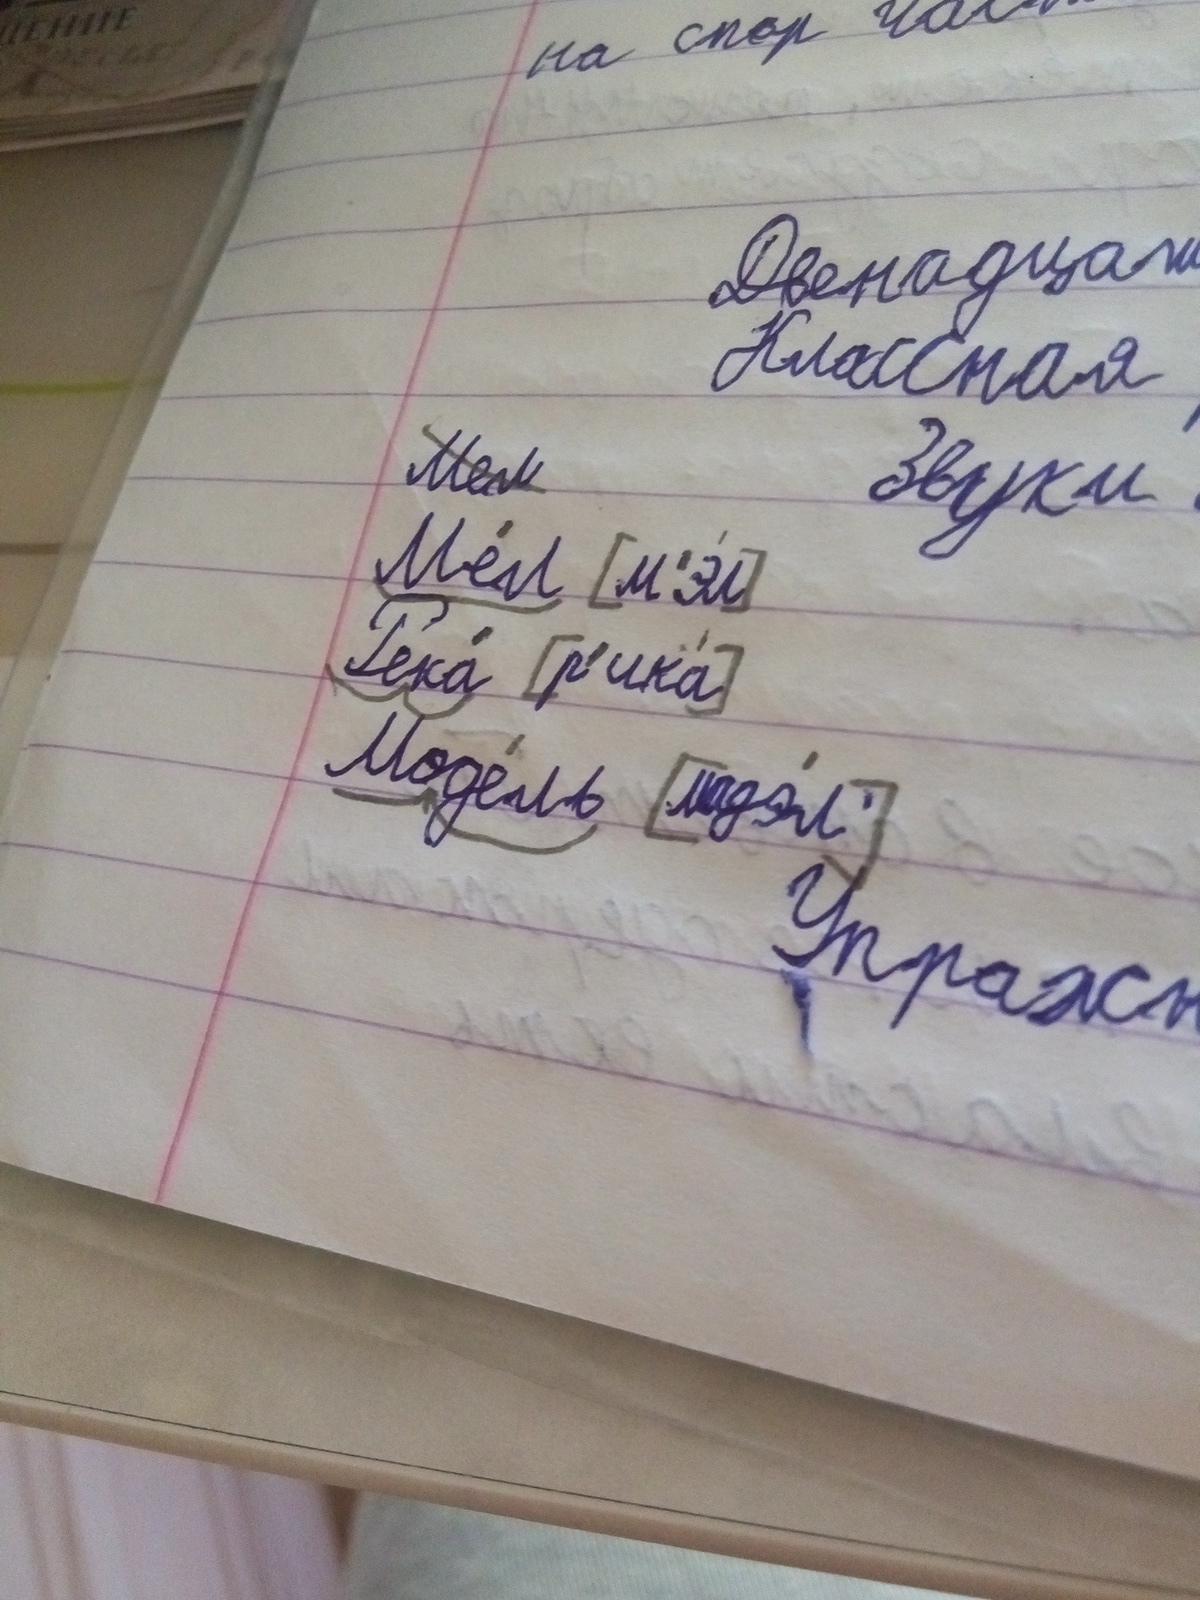 ДЕНИЕ
на спор
Двенадцат
Классная
Звуки
Мем
Ме́л [м'э́л]
Река́ [р'ика́]
Моде́ль [мадэ́л']
Упражн